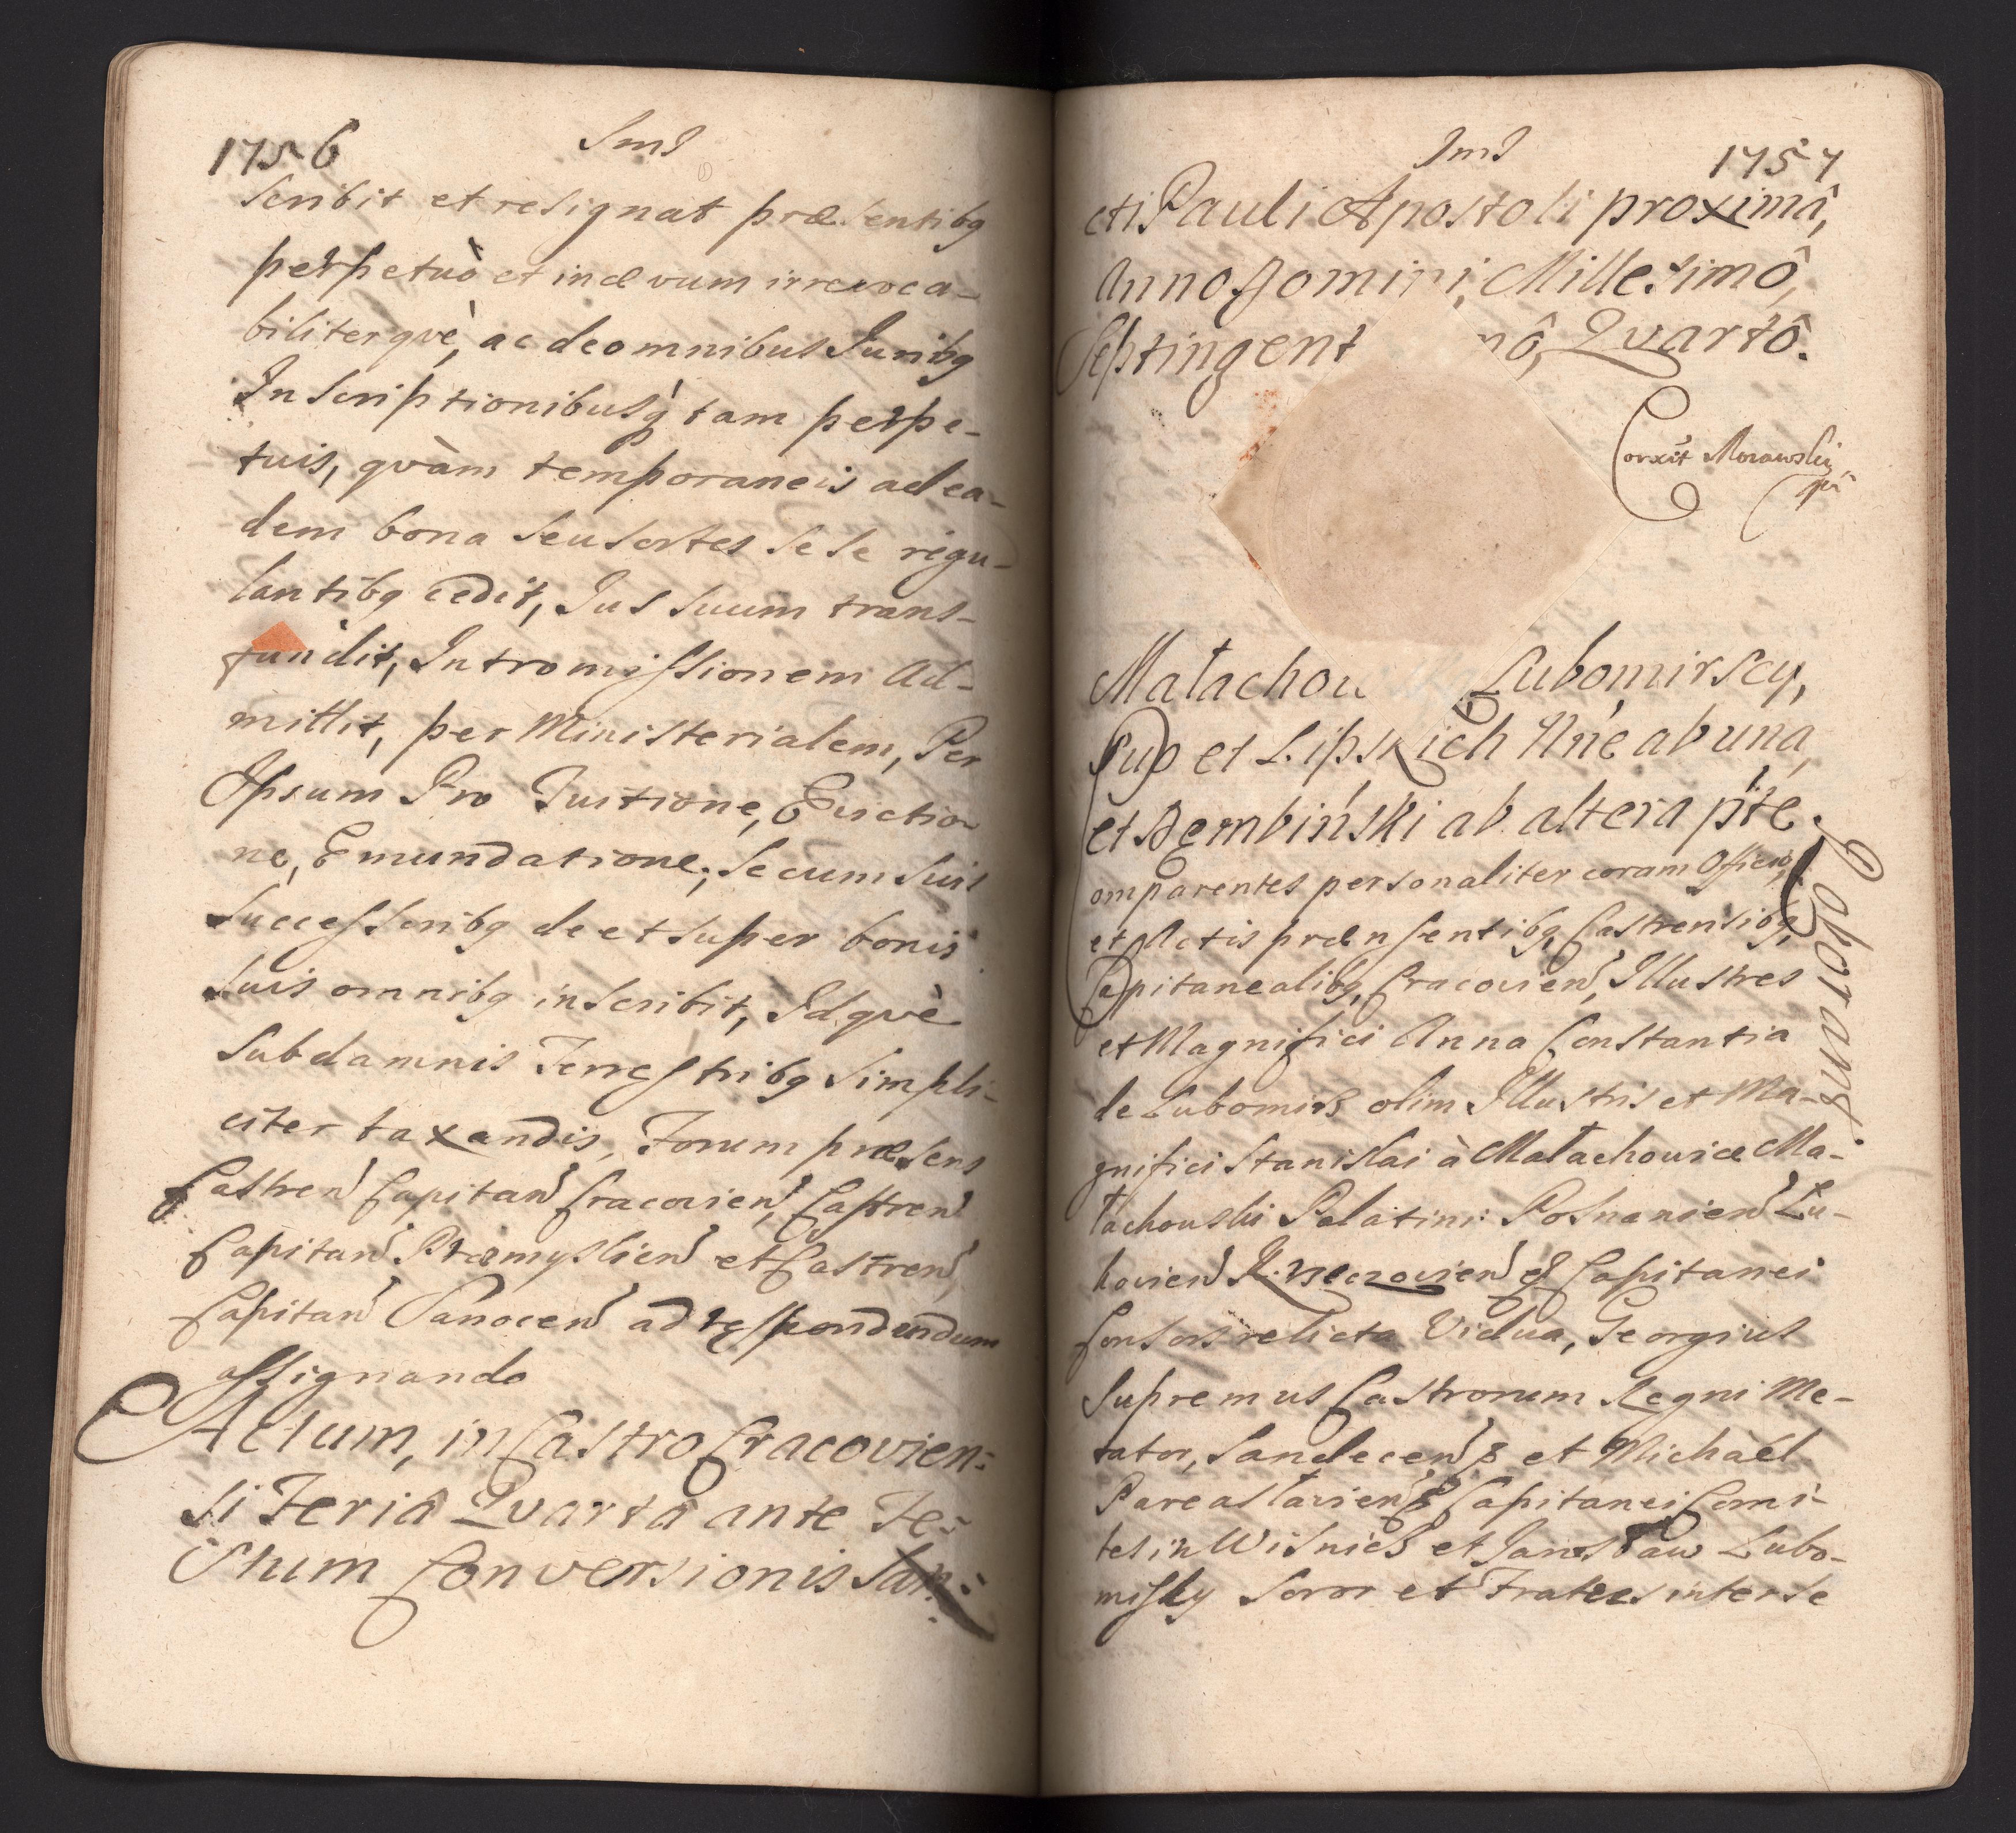 1756
scribit et resignat præsentibq
perpetuò et in ævum irrevoca-
biliterqvè, ac de omnibus Juribq
Inscriptionibusq̀ tam perpe-
tuis, qvàm temporaneis ad ea-
dem bona seu sortes sese regu-
lantibq cedit, Jus suum trans-
fundit, Intromissionem Ad-
mittit, per Ministerialem, Per
Ipsum Pro Tuitione, Evictio-
ne, Emundatione, se cum suis
Successoribq de et super bonis
suis omnibq inscribit, Idqvè
sub damnis Terrestribq simpli-
citer taxandis, Forum præsens
Castren Capitan Cracovien, Castren
Capitan Præmyslien et Castren,
Capitan Sanocen ad respondendum
assignando
Actum, in Castro Cracovien:
si Feriâ Qvartâ ante Fe:
stum Conversionis San:
1757
cti Pauli Apostoli proximâ,
Anno Domini, Millesimô,
Septingent mô, Qvartô.
Corxit Morawski
Małachow Lubomirscy,
Pup et Lipskich Nne ab una,
et Dembiński ab altera pte.
Comparentes personaliter coram Officio,
et Actis prænsentibq, Castrensibq,
Capitanealibq, Cracovien, Illustres
et Magnifici Anna Constantia
de Lubomirz olim Illustris et Ma-
gnifici Stanislai à Małachowice Ma-
łachowski Palatini Posnanien Lu-
kovien Krzeczovien Capitanei
Consors relicta Vidua, Georgius
Supremus Castrorum Regni Me-
tator, Sandecen et Michàél
Pareasłavien Capitanei Comi-
tes in Wisnicz et Jarosław Lubo-
mirsky Soror et Fratres inter se
Roborang.